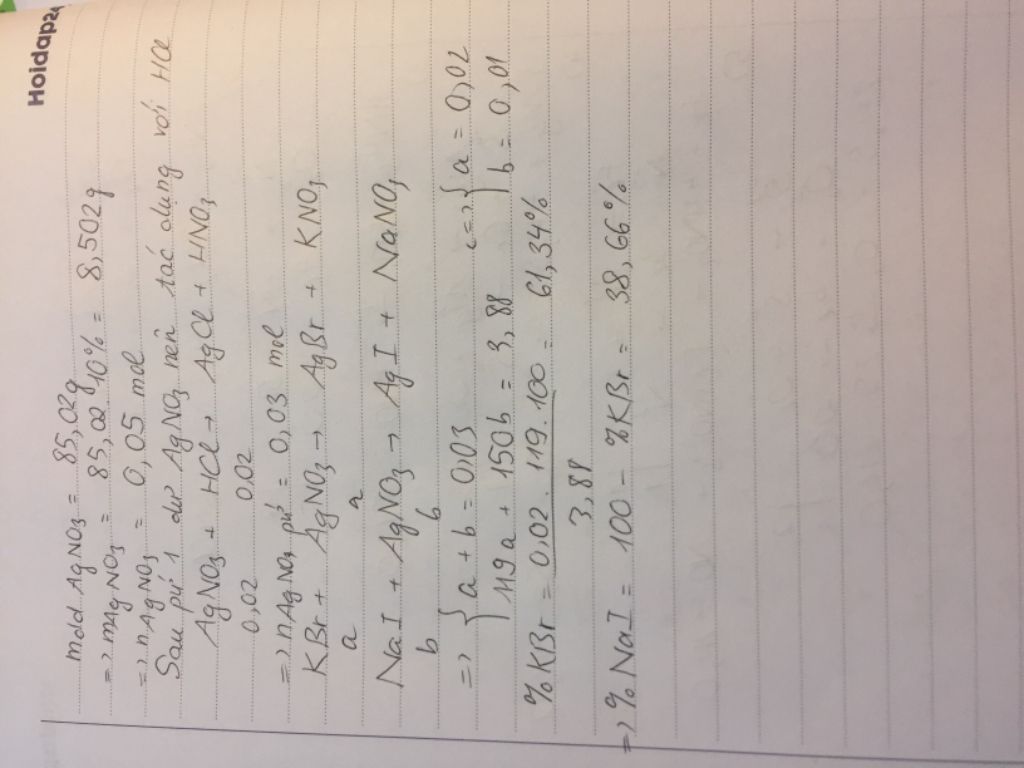 Hoidap24
mdd AgNO₃ = 85,02g
=> mAgNO₃ = 85,02 . 10% = 8,502g
=> nAgNO₃ = 0,05 mol
Sau pứ 1 dư AgNO₃ nên tác dụng với HCl
AgNO₃ + HCl → AgCl + HNO₃
0,02 0,02
=> nAgNO₃ pứ = 0,03 mol
KBr + AgNO₃ → AgBr + KNO₃
a a
NaI + AgNO₃ → AgI + NaNO₃
b b
=> { a + b = 0,03
119a + 150b = 3,88 <=> { a = 0,02
b = 0,01
%KBr = 0,02 . 119 . 100 = 61,34%
3,88
=> %NaI = 100 - %KBr = 38,66%